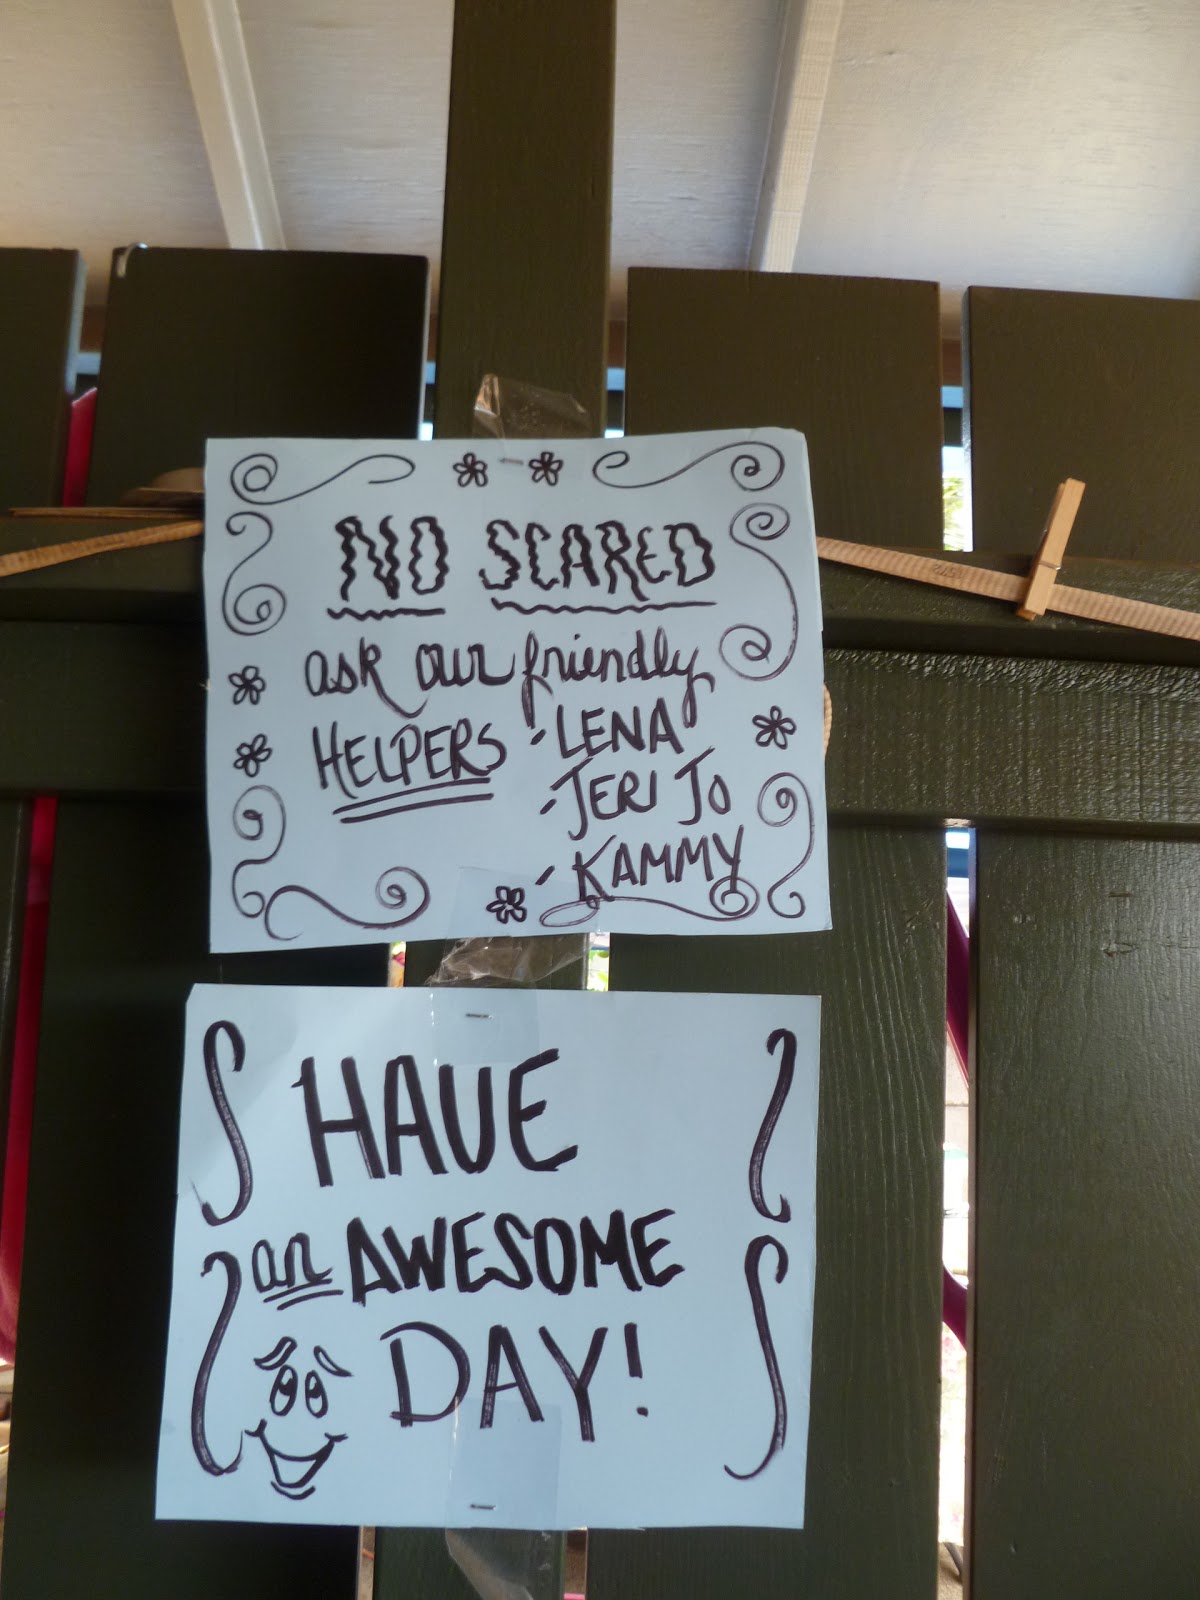 NO SCARED
ask our friendly
HELPERS - LENA
- JERI JO
- KAMMY
HAVE
an AWESOME
DAY!